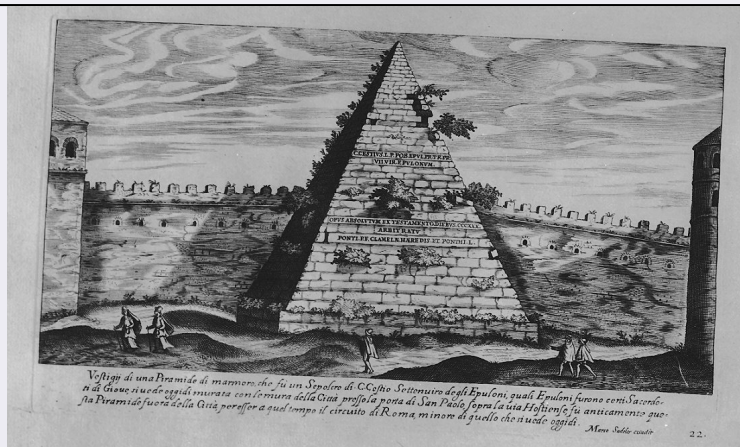 C.CESTIVS.L.F.POB.EPVL.PR.TR.PL
VII.VIR.EPVLONVM
OPVS.ABSOLVTVM.EX.TESTAMENTO.DIEBVS.CCCXXX.
ARBITRATV
PONTI.P.F.CLAMELÆ.HÆREDIS.ET.PONTHI.L.
Vestigij di una Piramide di marmoro, che fù un Sepolcro di C.Cestio Settenuiro degli Epuloni, quali Epuloni furono certi Sacerdo-
ti di Gioue, si uede oggidi murata con le mura della Città presso la porta di San Paolo, sopra la uia Hostiense fù anticamente que-
sta Piramide fuora della Città, per esser a quel tempo il circuito di Roma, minore di quello che si uede oggidi.
Marco Sadeler excudit
22.